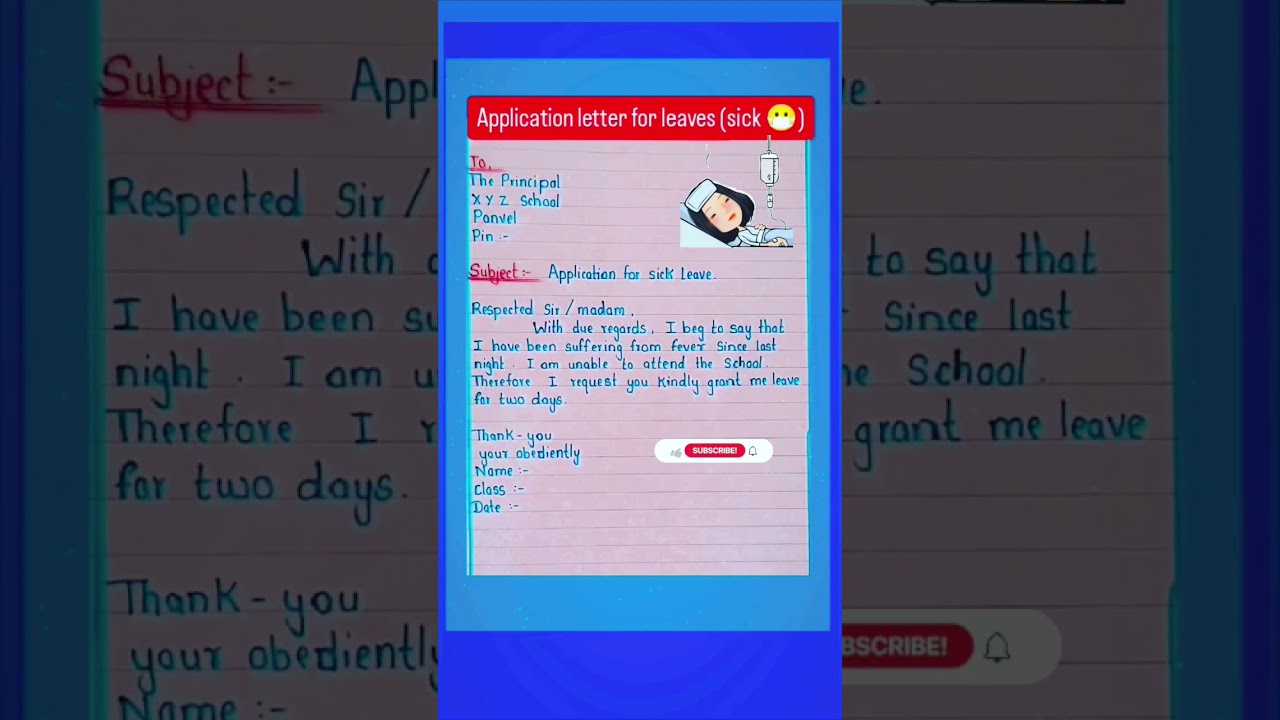 Application letter for leaves (sick 😷)
To,
The Principal
X Y Z School
Panvel
Pin :-
Subject :- Application for sick Leave.
Respected Sir / madam,
With due regards, I beg to say that
I have been suffering from fever Since last
night. I am unable to attend the School.
Therefore I request you Kindly grant me leave
for two days.
Thank-you
your obediently
Name :-
Class :-
Date :-
SUBSCRIBE!
Subject :- Appl
e.
Respected Sir /
With d
to say that
I have been su
Since last
night. I am u
he School.
Therefore I r
grant me leave
for two days.
Thank-you
your obediently
Name :-
BSCRIBE!